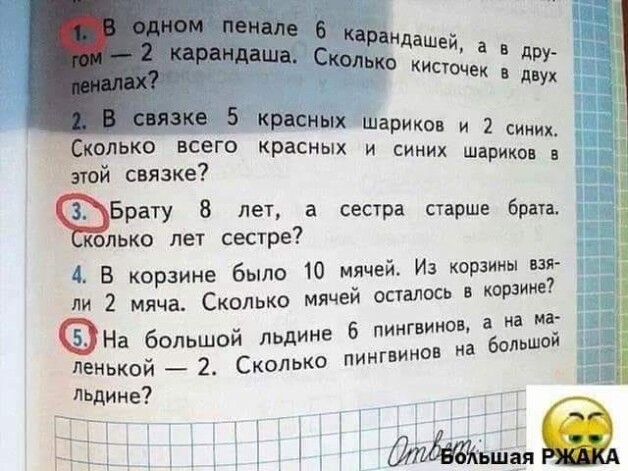 1. В одном пенале 6 карандашей, а в дру-
гом — 2 карандаша. Сколько кисточек в двух
пеналах?
2. В связке 5 красных шариков и 2 синих.
Сколько всего красных и синих шариков в
этой связке?
3. Брату 8 лет, а сестра старше брата.
Сколько лет сестре?
4. В корзине было 10 мячей. Из корзины взя-
ли 2 мяча. Сколько мячей осталось в корзине?
5. На большой льдине 6 пингвинов, а на ма-
ленькой — 2. Сколько пингвинов на большой
льдине?
Ответ:
Большая РЖАКА